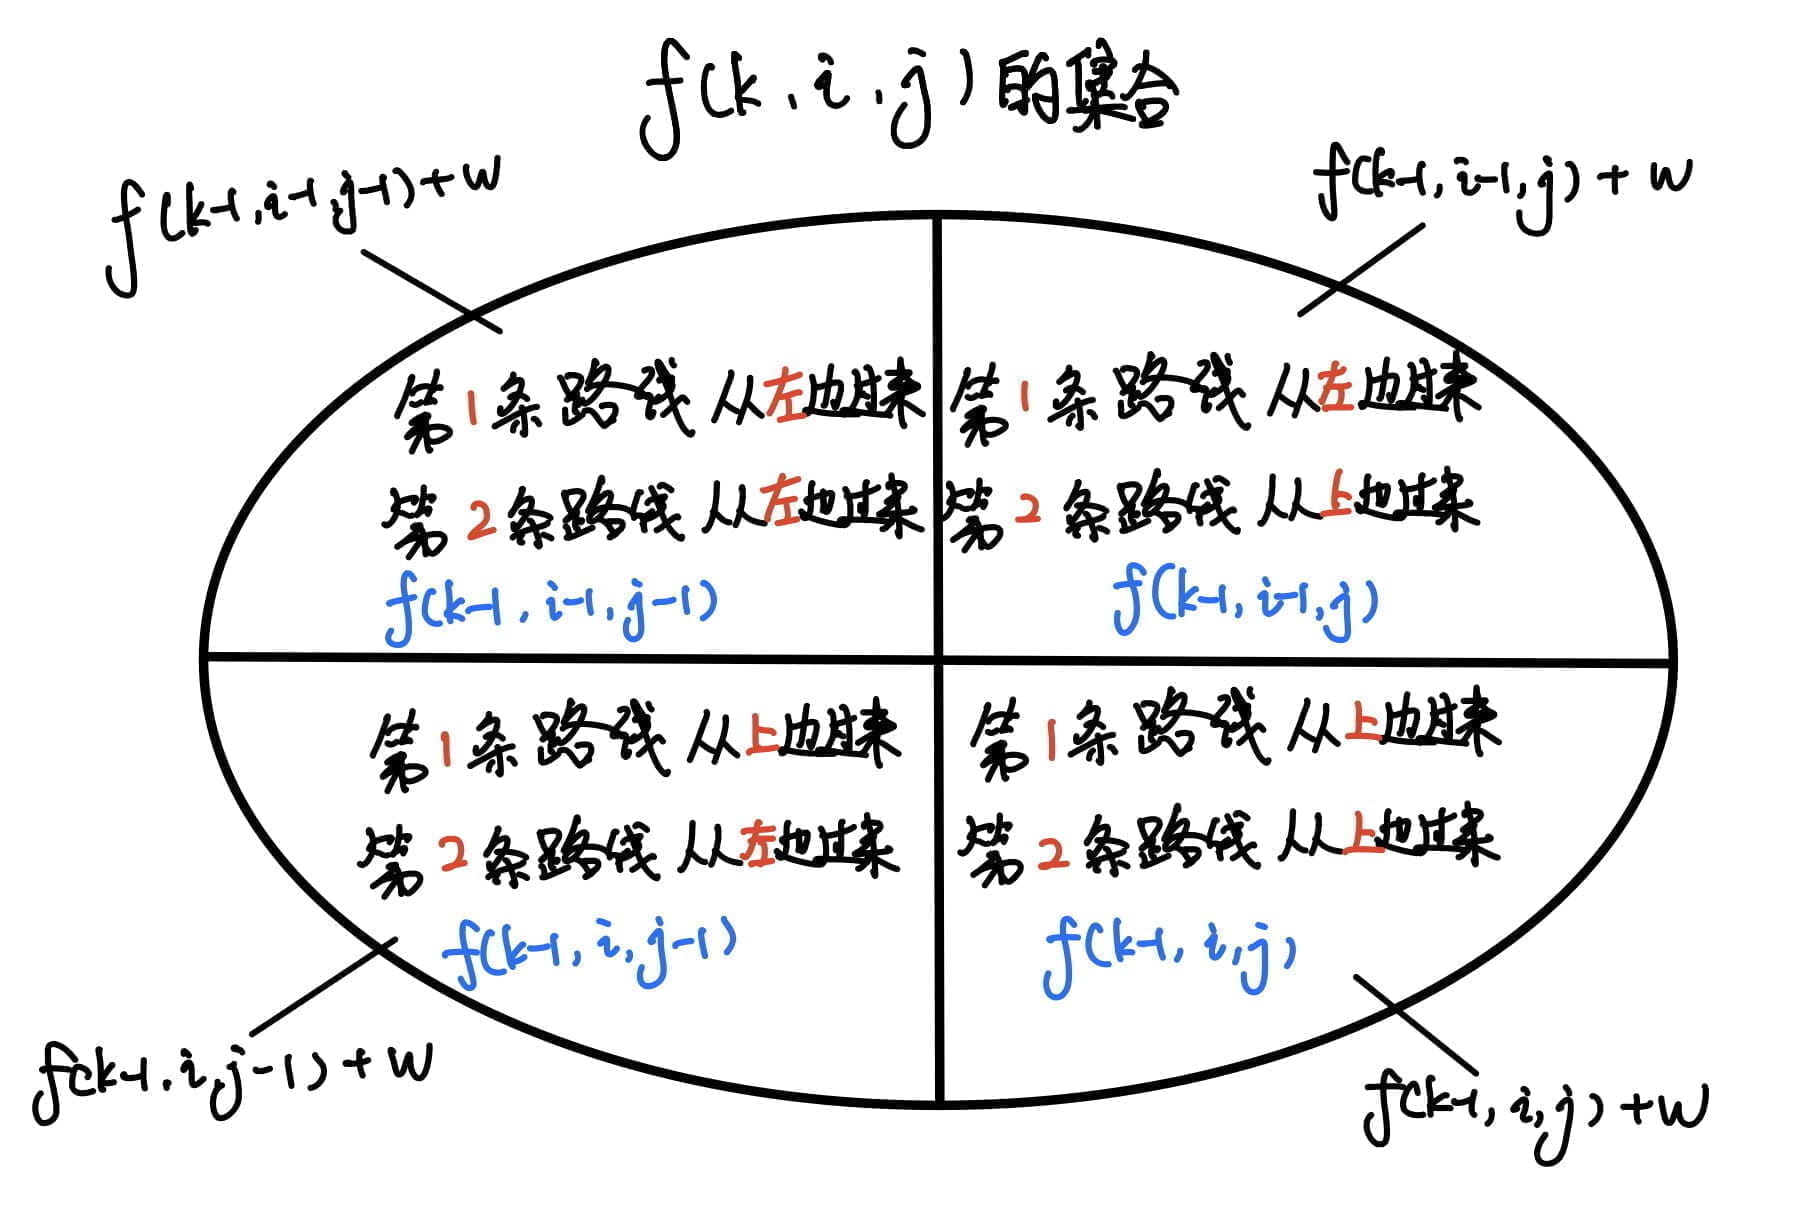 f(k,i,j)的集合
f(k-1,i-1,j-1)+w
f(k-1,i-1,j)+w
第1条路线从左边过来
第2条路线从左边过来
f(k-1,i-1,j-1)
第1条路线从左边过来
第2条路线从上边过来
f(k-1,i-1,j)
第1条路线从上边过来
第2条路线从左边过来
f(k-1,i,j-1)
第1条路线从上边过来
第2条路线从上边过来
f(k-1,i,j)
f(k-1,i,j-1)+w
f(k-1,i,j)+w